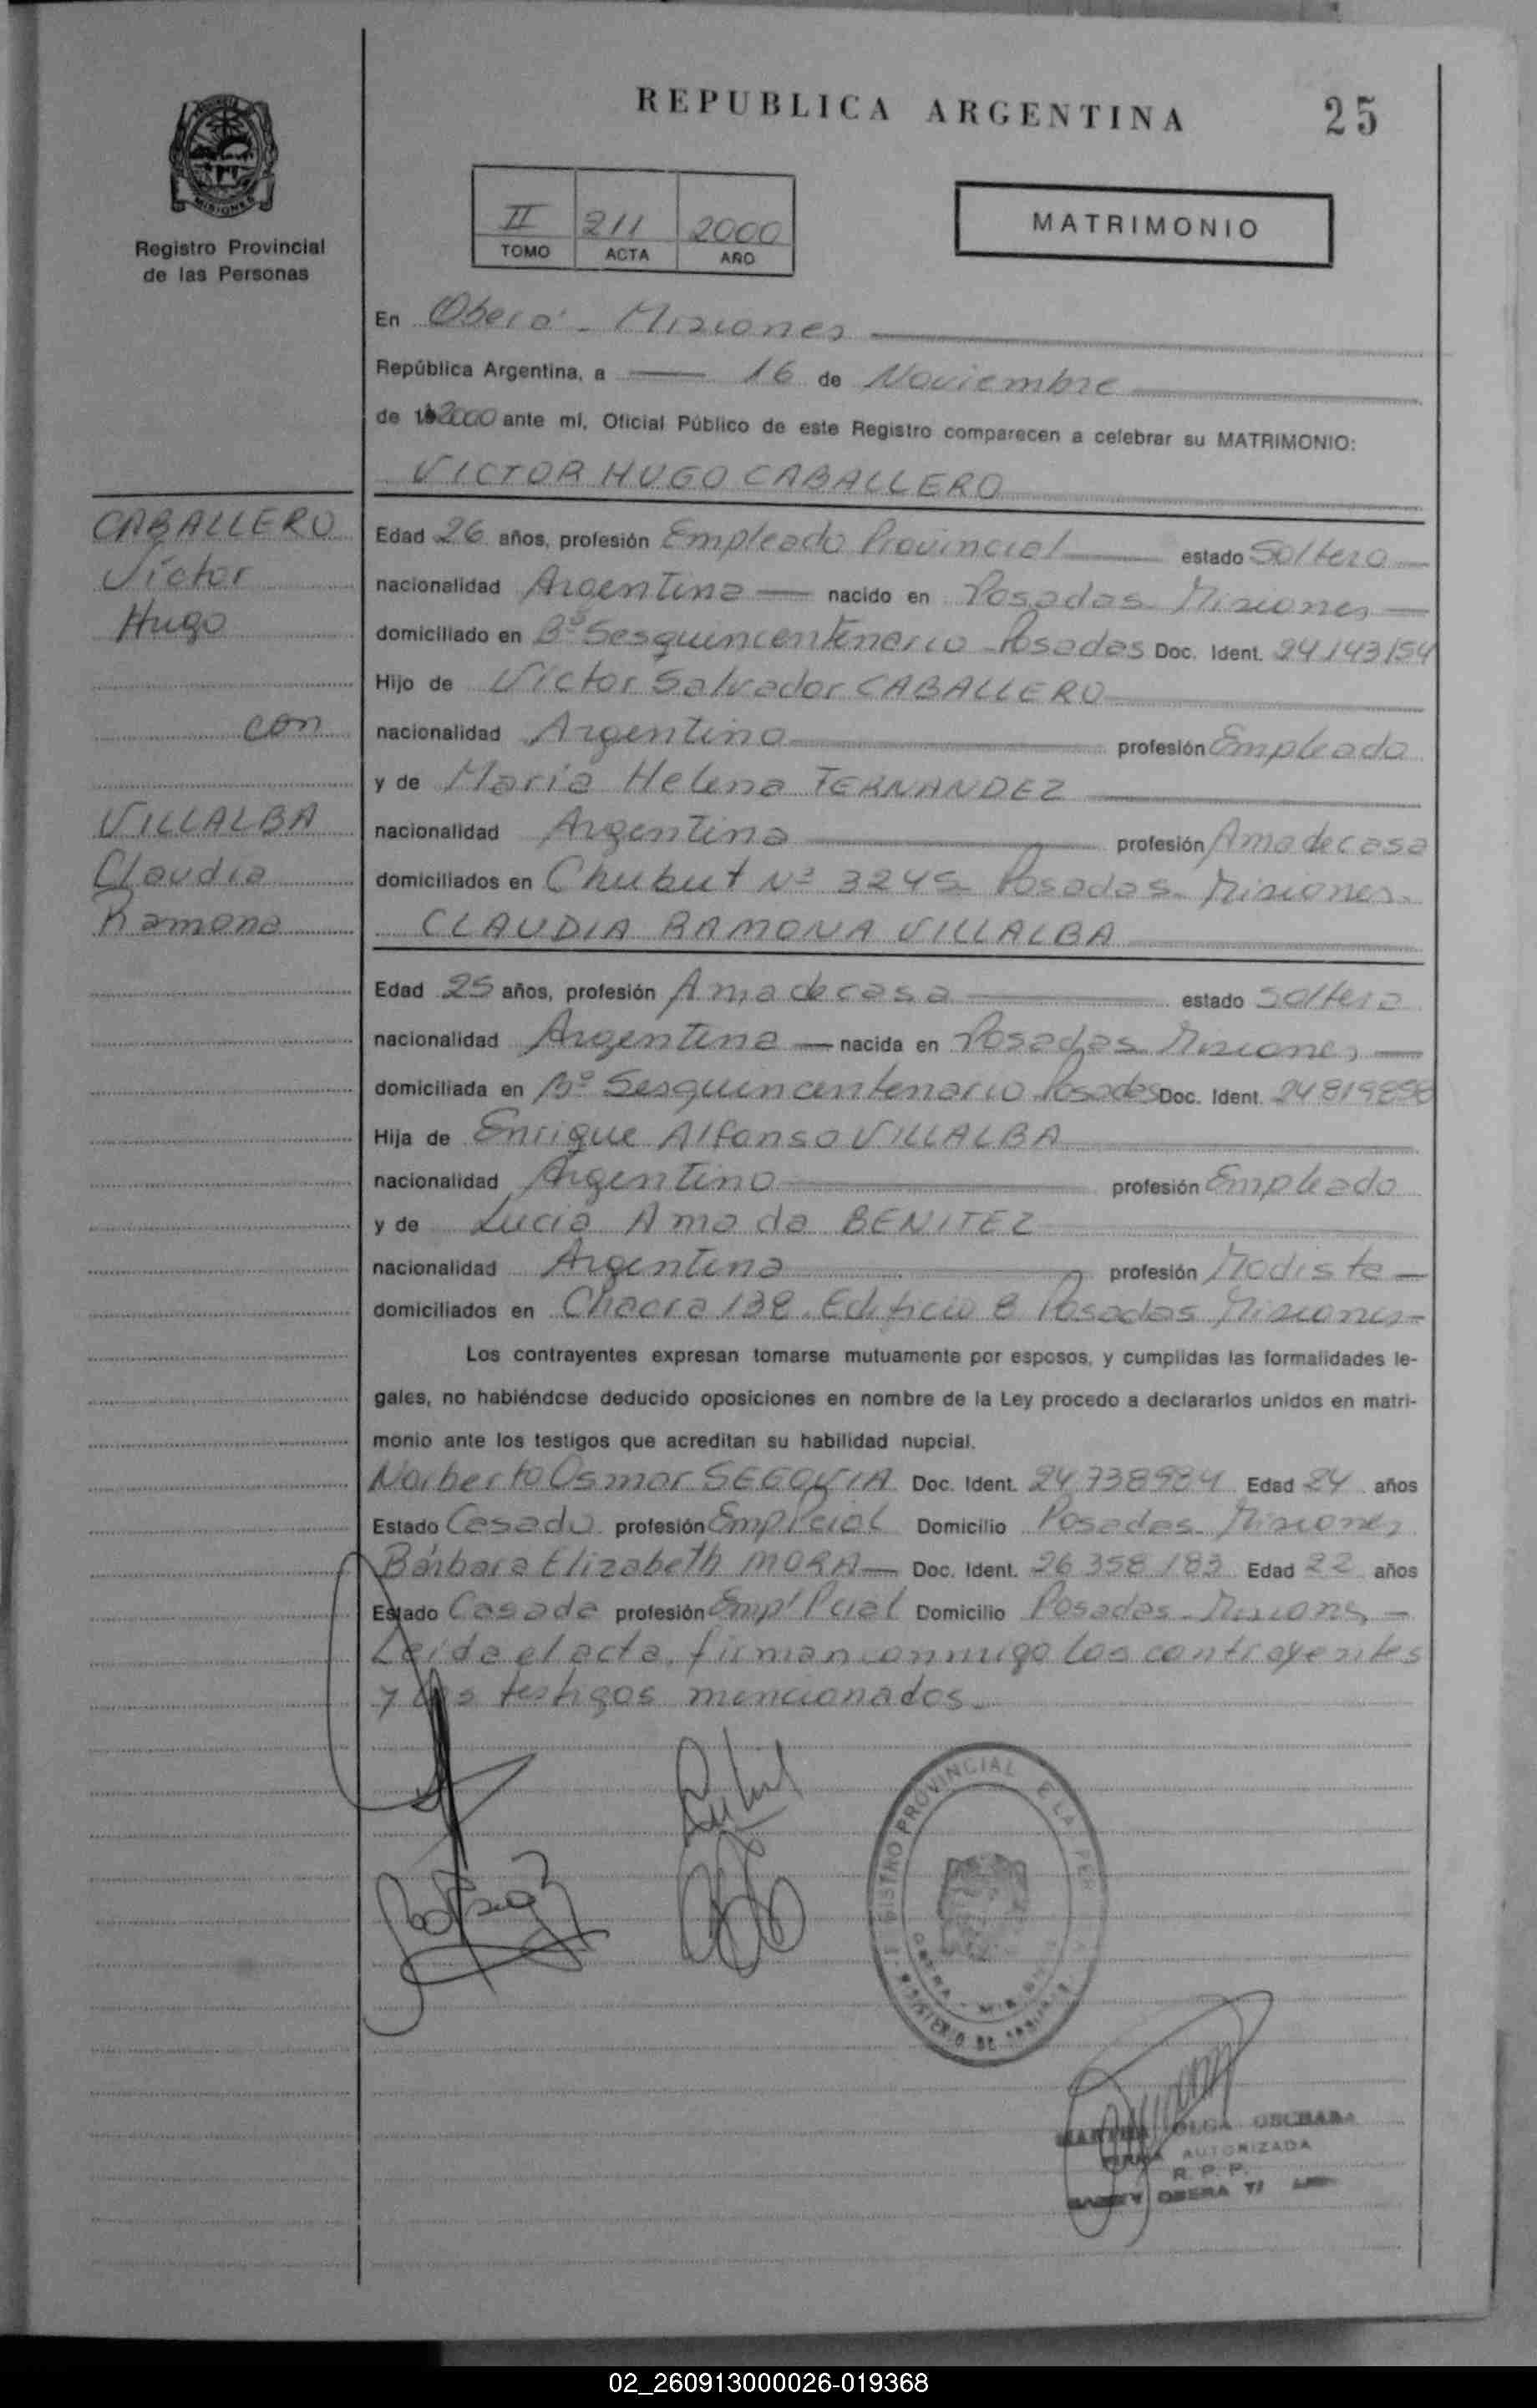 REPUBLICA ARGENTINA
25
MISIONES
Registro Provincial
de las Personas
II 211 2000
TOMO ACTA AÑO
MATRIMONIO
En Oberá - Misiones
República Argentina, a 16 de Noviembre
de 2000 ante mí, Oficial Público de este Registro comparecen a celebrar su MATRIMONIO:
VICTOR HUGO CABALLERO
CABALLERO
Víctor
Hugo
con
VILLALBA
Claudia
Ramona
Edad 26 años, profesión Empleado Provincial estado Soltero
nacionalidad Argentina nacido en Posadas Misiones
domiciliado en Bº Sesquincentenario - Posadas Doc. Ident. 24143154
Hijo de Víctor Salvador CABALLERO
nacionalidad Argentino profesión Empleado
y de María Helena FERNANDEZ
nacionalidad Argentina profesión Ama de casa
domiciliados en Chubut Nº 3245 Posadas - Misiones
CLAUDIA RAMONA VILLALBA
Edad 25 años, profesión Ama de casa estado soltera
nacionalidad Argentina nacida en Posadas Misiones
domiciliada en Bº Sesquincentenario Posadas Doc. Ident.
Hija de Enrique Alfonso VILLALBA
nacionalidad Argentino profesión Empleado
y de Lucia Amada BENITEZ
nacionalidad Argentina profesión Modista
domiciliados en Chacra 138 Edificio 8 Posadas Misiones
Los contrayentes expresan tomarse mutuamente por esposos, y cumplidas las formalidades le-
gales, no habiéndose deducido oposiciones en nombre de la Ley procedo a declararlos unidos en matri-
monio ante los testigos que acreditan su habilidad nupcial.
Norberto Osmar SEGOVIA Doc. Ident. 24.738.934 Edad 24 años
Estado Casado profesión Emp Pcial Domicilio Posadas - Misiones
Bárbara Elizabeth MORA Doc. Ident. 26 358 183 Edad 22 años
Estado Casada profesión Emp Pcial Domicilio Posadas - Misiones
Leída el acta, firman conmigo los contrayentes
y los testigos mencionados.
REGISTRO PROVINCIAL DE LAS PERSONAS
OLGA
AUTORIZADA
R. P. P.
OBERA
02_260913000026-019368